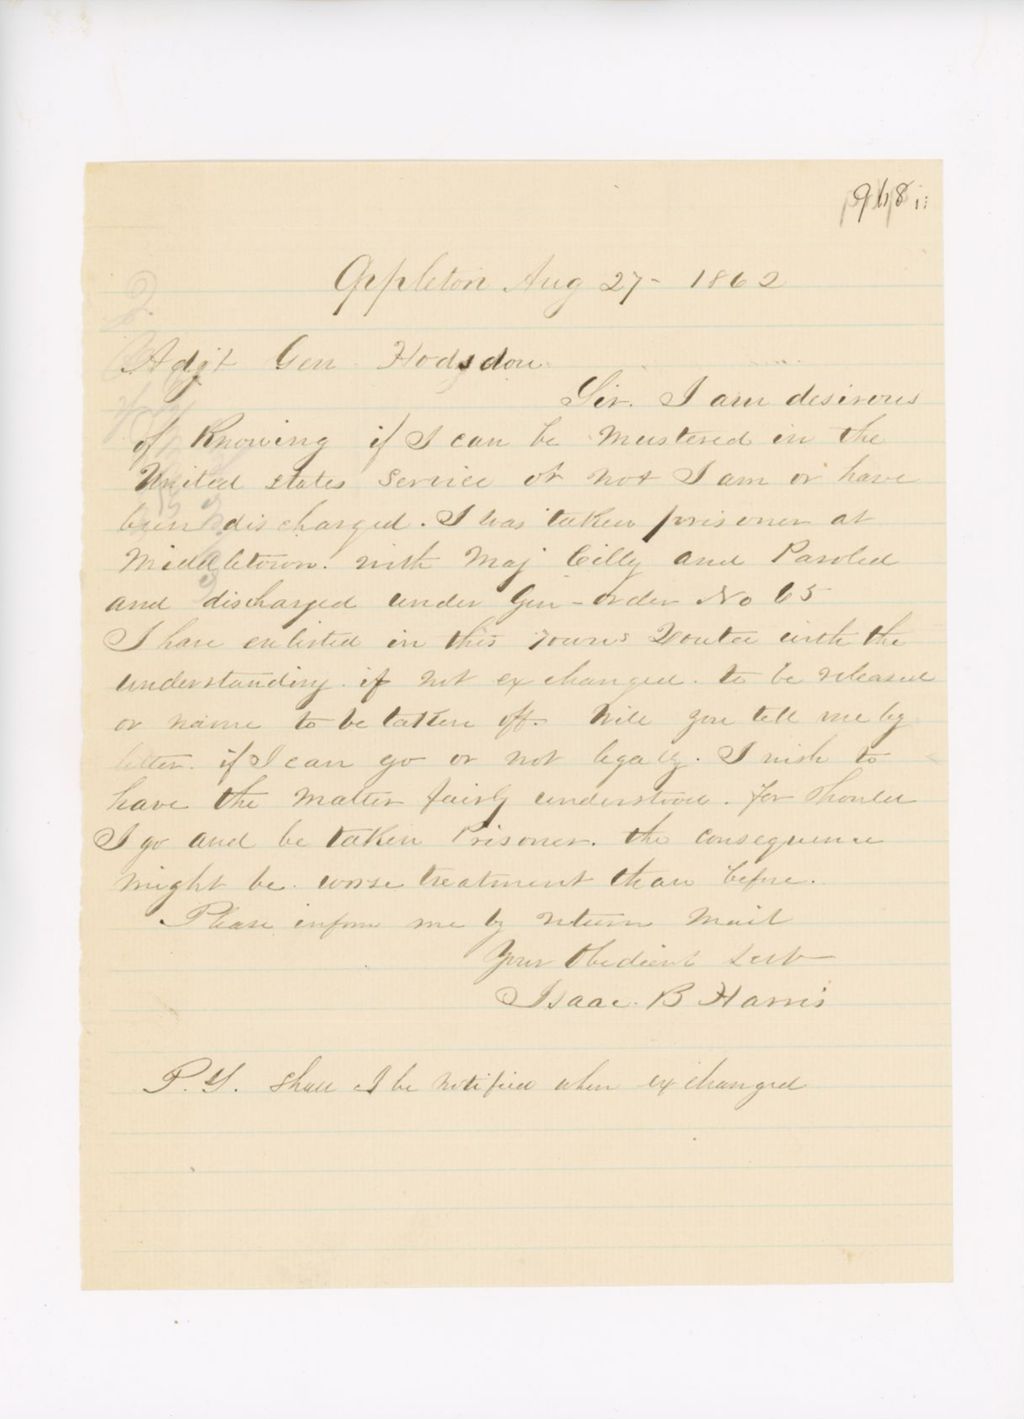 968
Appleton Aug 27 - 1862
Adjt Gen Hodsdon
Sir. I am desirous
of Knowing if I can be Mustered in the
United states Service or not I am or have
been discharged. I was taken prisoner at
Middletown. with Maj Cilly and Paroled
and discharged under Gen - order No 65
I have enlisted in this Towns Quota with the
understanding. if not exchanged. to be released
or name to be taken off. Will you tell me by
letter. if I can go or not legaly. I wish to
have the Matter fairly understood. for Should
I go and be taken Prisoner. the consequence
might be. worse treatment than before.
Please inform me by return Mail
Your Obedient Servt
Isaac. B Harris
P. S. Shall I be notified when exchanged